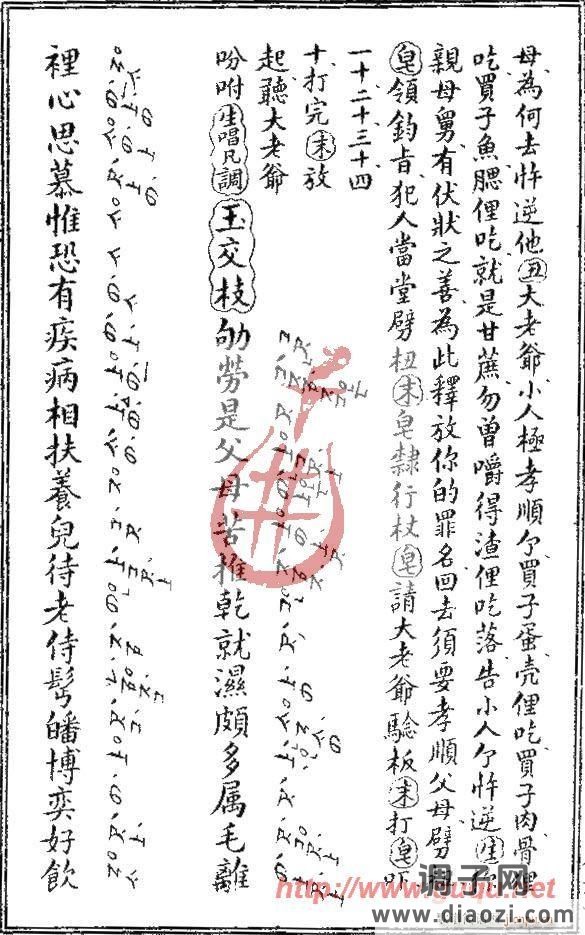 母為何去忤逆他丑大老爺小人極孝順个買子蛋壳俚吃買子肉骨俚
吃買子魚腮俚吃就是甘蔗勿曾嚼得渣俚吃落告小人个忤逆生
親母舅有伏狀之善為此釋放你的罪名回去須要孝順父母劈
皂領鈞旨犯人當堂劈杻末皂隸行杖皂請大老爺驗板末打皂吓
一十二十三十四
十打完末放
起聽大老爺
吩咐生唱凡調玉交枝劬勞是父母苦推乾就濕頗多属毛離
裡心思慕惟恐有疾病相扶養兒待老侍髩皤博奕好飲
调子网
http://www.guqu.net
www.diaozi.com